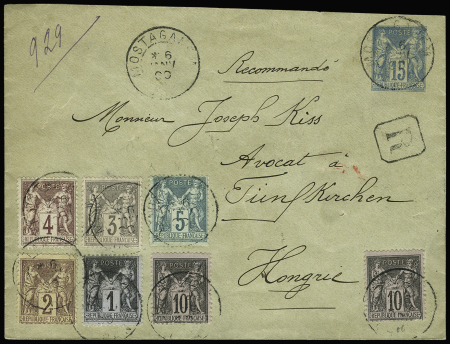 929
MOSTAGANEM
6
JANV
90
15
Recommandé
R
Monsieur Joseph Kiss
Avocat à
Fünfkirchen
Hongrie
POSTE
4
REPUBLIQUE FRANÇAISE
POSTE
3
REPUBLIQUE FRANÇAISE
POSTE
5
REPUBLIQUE FRANÇAISE
2
REPUBLIQUE FRANÇAISE
1
REPUBLIQUE FRANÇAISE
POSTE
10
REPUBLIQUE FRANÇAISE
POSTE
10
REPUBLIQUE FRANÇAISE